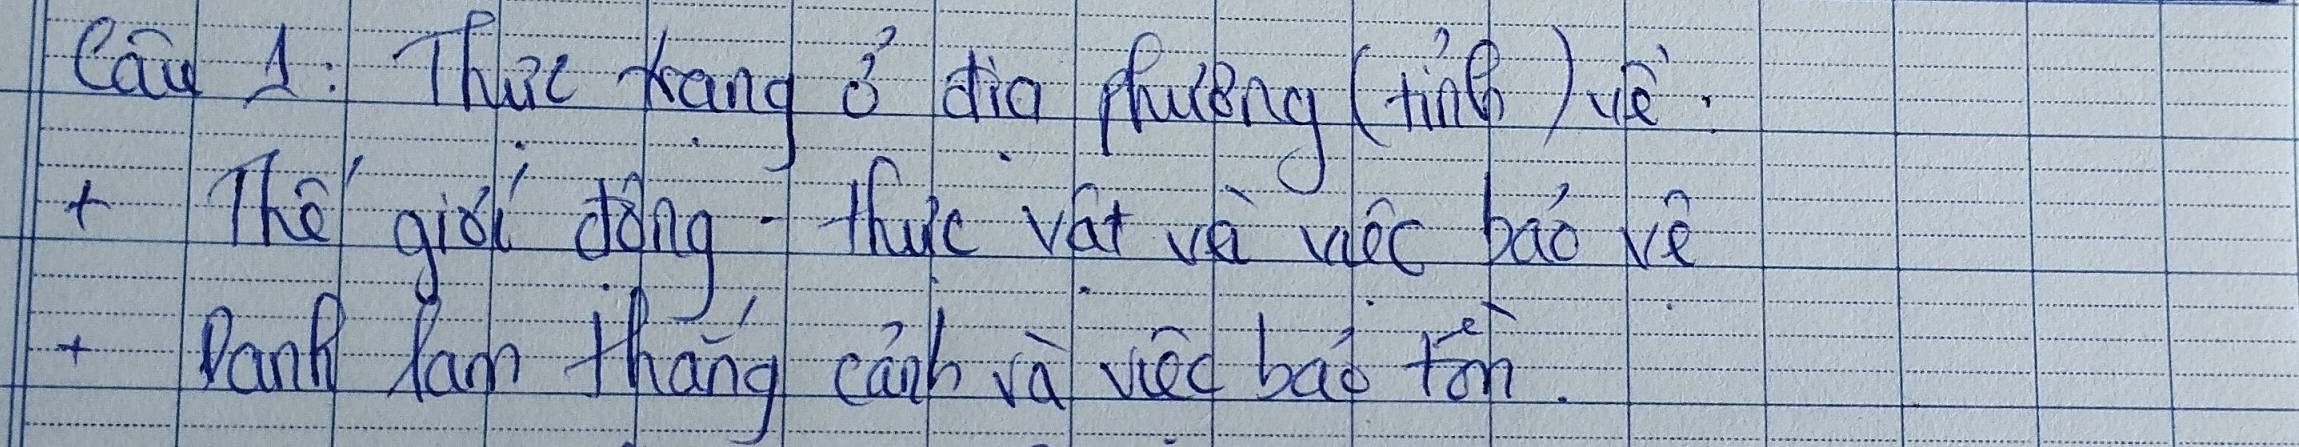 Câu 1: Thực trạng ở địa phương (tỉnh) về.
+ Thế giới động - thực vật và việc bảo vệ
+ Danh lam thắng cảnh và việc bảo tồn.